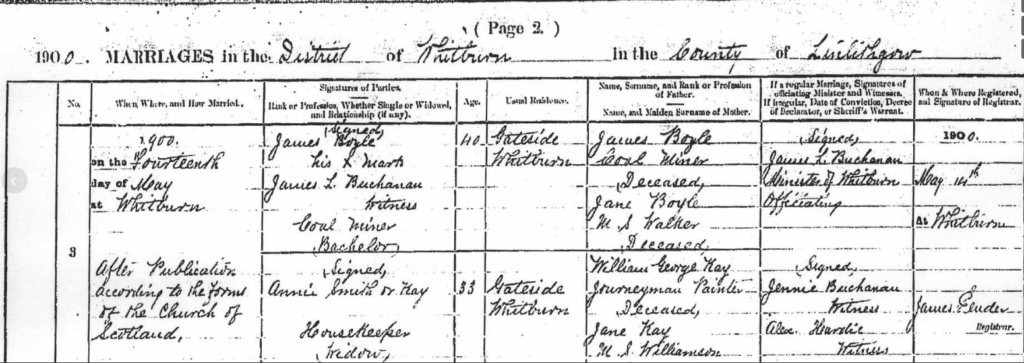 ( Page 2. )
1900. MARRIAGES in the District of Whitburn in the County of Linlithgow
No.
When, Where, and How Married.
Signatures of Parties.
Rank or Profession, Whether Single or Widowed, and Relationship (if any).
Age.
Usual Residence.
Name, Surname, and Rank or Profession of Father.
Name, and Maiden Surname of Mother.
If a regular Marriage, Signatures of officiating Minister and Witnesses.
If irregular, Date of Conviction, Decree of Declarator, or Sheriff's Warrant.
When & Where Registered, and Signature of Registrar.
3
1900.
on the Fourteenth
day of May
at Whitburn
After Publication
according to the forms
of the Church of
Scotland,
(Signed)
James Boyle
his X mark
James L. Buchanan
Witness
Coal Miner
(Bachelor)
40
Gateside
Whitburn
James Boyle
Coal Miner
(Deceased)
Jane Boyle
M. S. Walker
(Deceased)
(Signed)
James L. Buchanan
Minister of Whitburn
Officiating
1900.
May 14th
At Whitburn
(Signed)
Annie Smith or Kay
Housekeeper
(Widow)
33
Gateside
Whitburn
William George Kay
Journeyman Painter
(Deceased)
Jane Kay
M. S. Williamson
(Signed)
Jennie Buchanan
Witness
Alex. Hardie
Witness
James
Registrar.